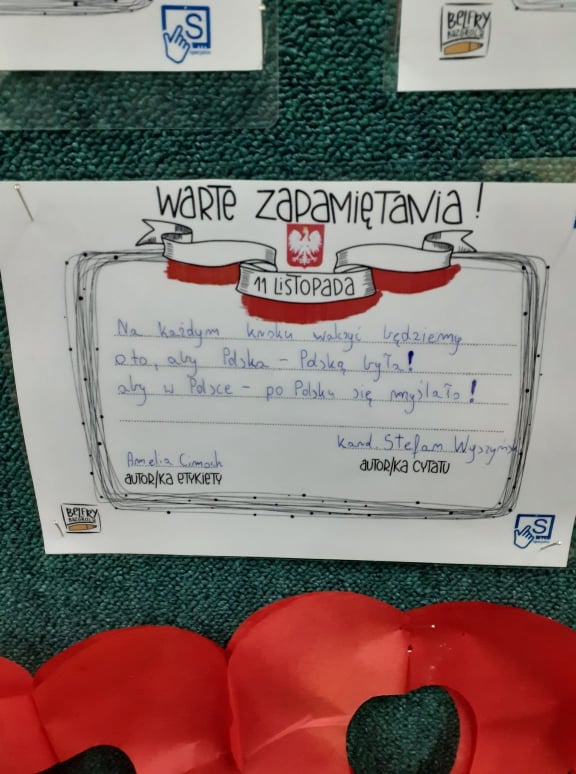 S
BELFRY
BAZGROLĄ
WARTE ZAPAMIĘTANIA!
11 LISTOPADA
Na każdym kroku walczyć będziemy
o to, aby Polska - Polską była!
aby w Polsce - po Polsku się myślało!
Kard. Stefan Wyszyńsk
Amelia Cimoch
AUTOR/KA CYTATU
AUTOR/KA ETYKIETY
BELFRY
BAZGROLĄ
S